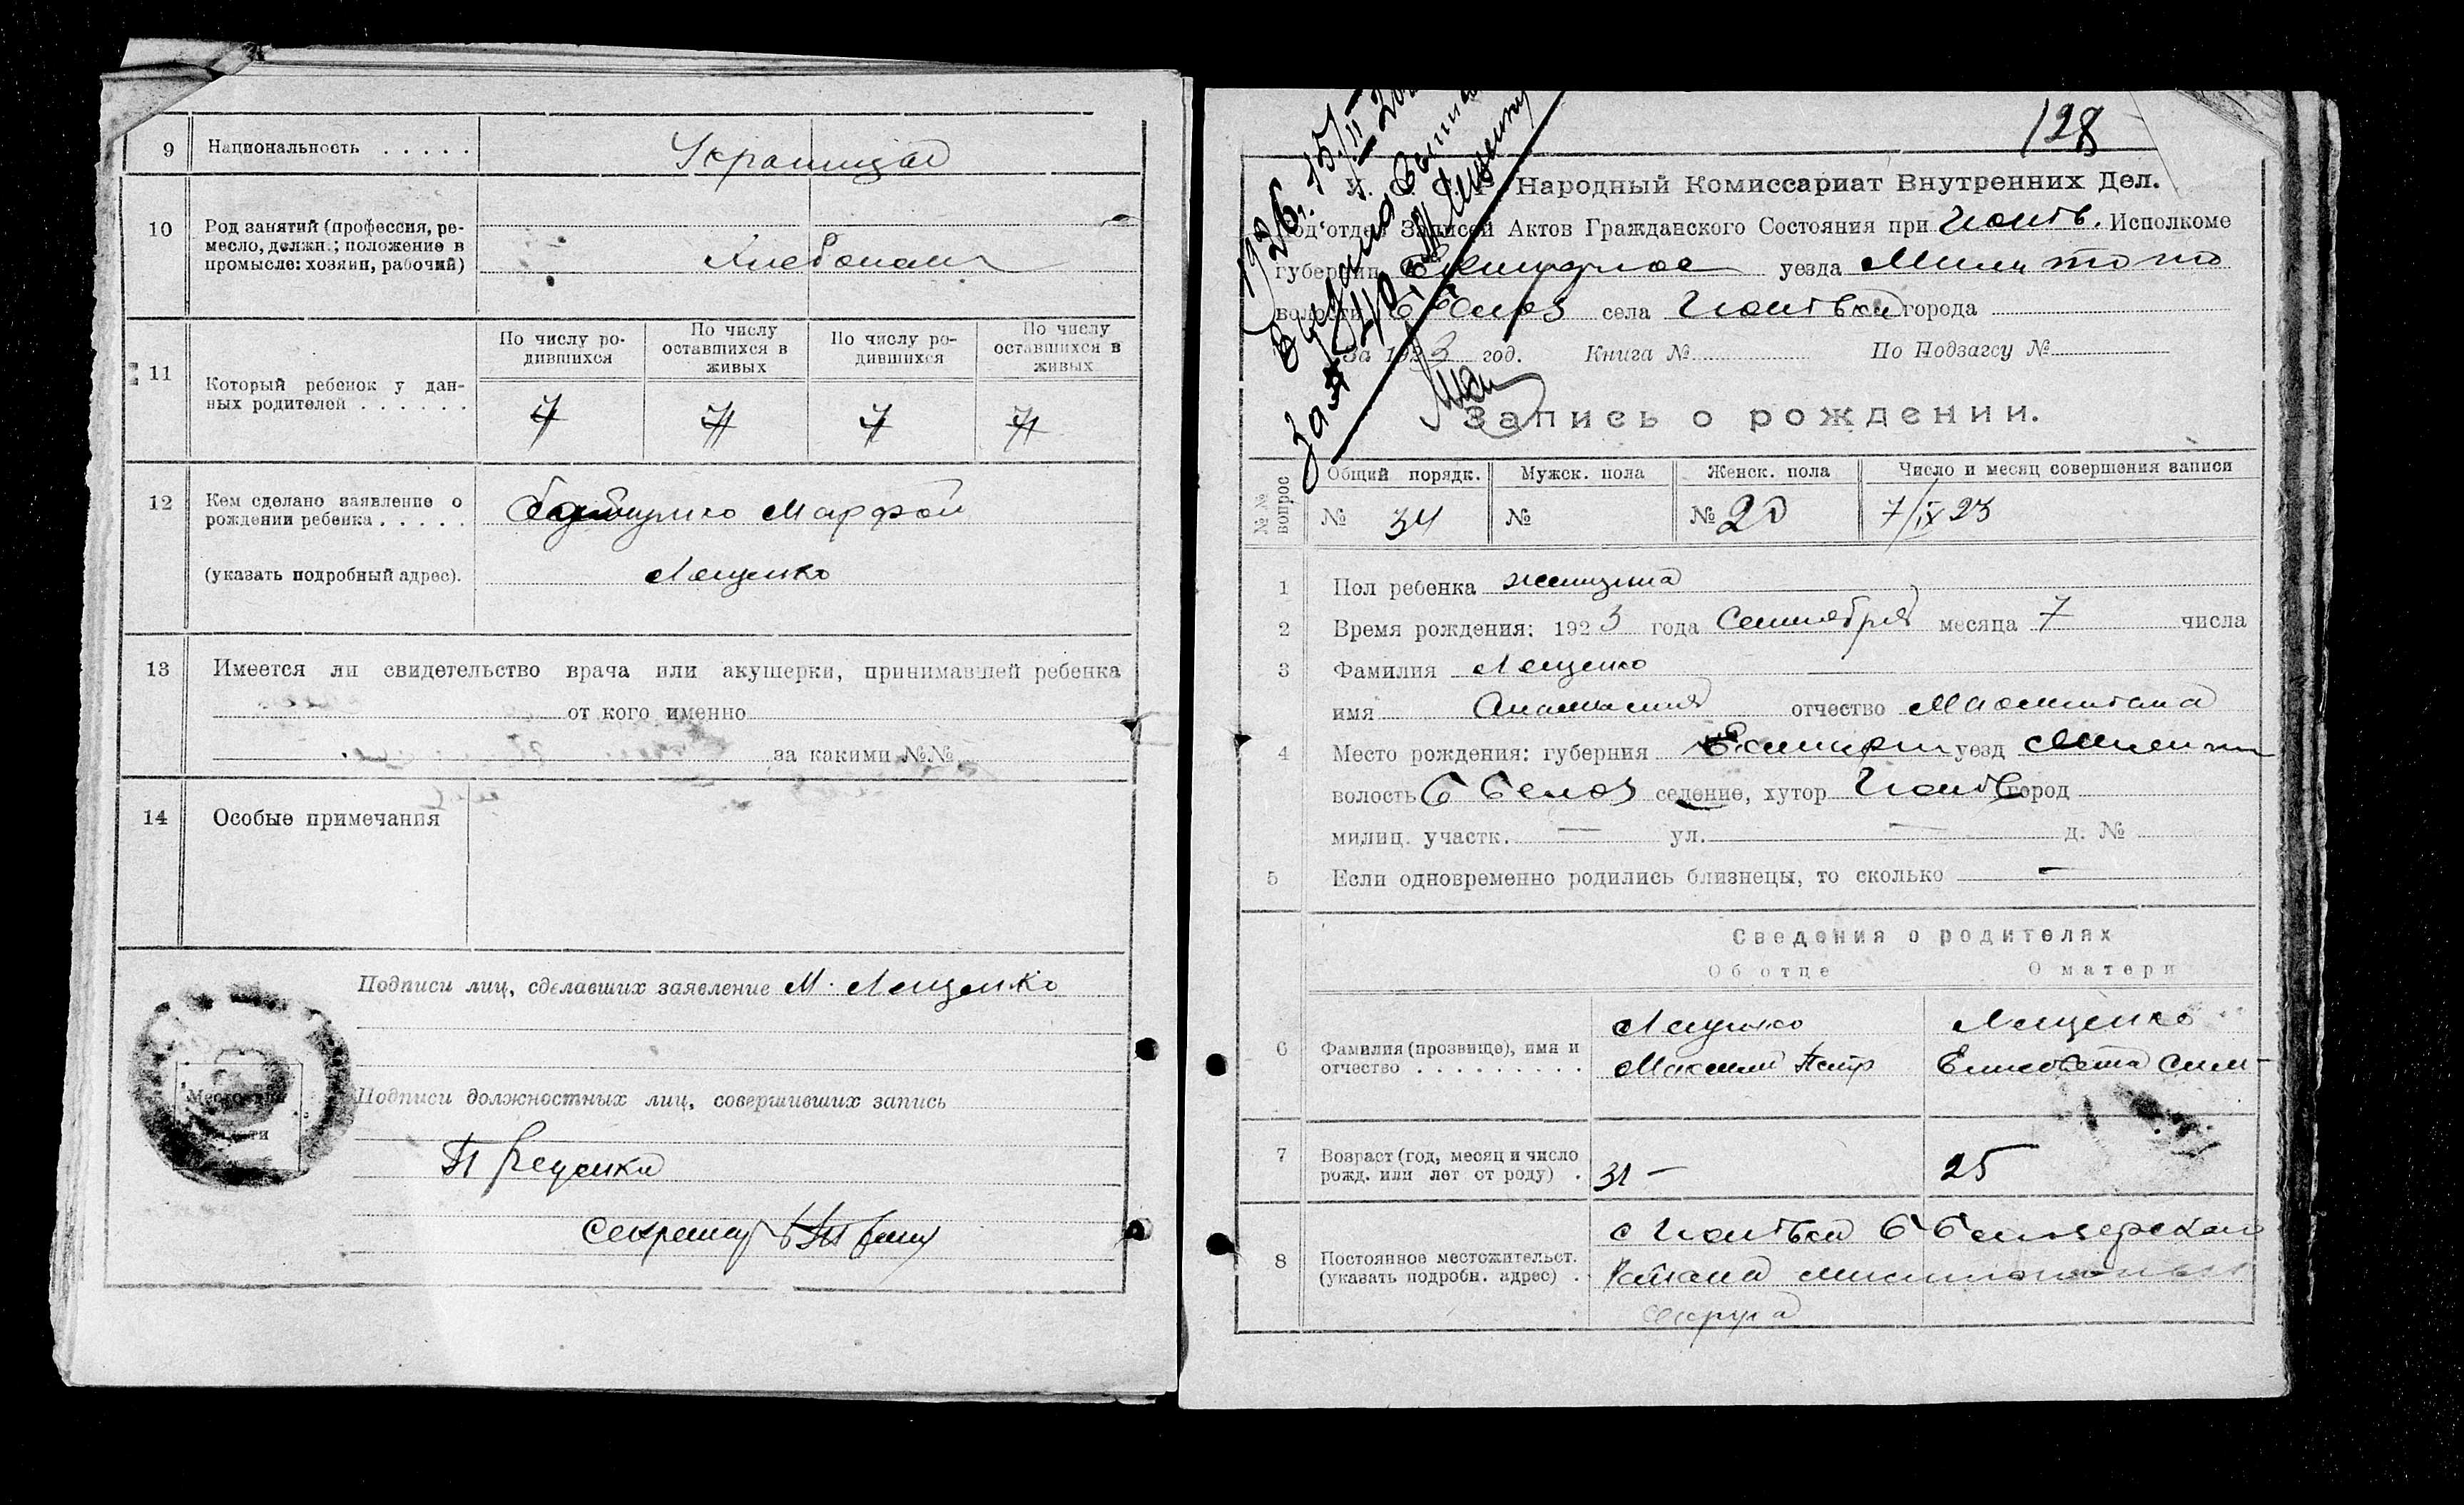 9 Национальность . . . . . Украинцы
10 Род занятий (профессия, ре-
месло, должн.; положение в
промысле: хозяин, рабочий) Хлебопаш
11 Который ребенок у дан-
ных родителей . . . . . .
По числу ро-
дившихся
По числу
оставшихся в
живых
По числу ро-
дившихся
По числу
оставшихся в
живых
12 Кем сделано заявление о
рождении ребенка . . . . . Марфой
(указать подробный адрес). Лещенко
13 Имеется ли свидетельство врача или акушерки, принимавшей ребенка
от кого именно
за какими №№
14 Особые примечания
Подписи лиц, сделавших заявление М. Лещенко
Подписи должностных лиц, совершивших запись
Секретар
128
Народный Комиссариат Внутренних Дел.
Под'отдел Записей Актов Гражданского Состояния при Исполкоме
губернии уезда Мелитопо
волости Б Белоз села города
За 1923 год. Книга № По Подзагсу №
Запись о рождении.
№№ вопрос
Общий порядк. Мужск. пола Женск. пола Число и месяц совершения записи
№ 34 № № 20 7/IX 23
1 Пол ребенка женщина
2 Время рождения: 1923 года Сентября месяца 7 числа
3 Фамилия Лещенко
имя Анастасия отчество
4 Место рождения: губерния Екатер уезд Мелит
волость Б Белоз селение, хутор город
милиц. участк. — ул. — д. №
5 Если одновременно родились близнецы, то сколько —
Сведения о родителях
Об отце О матери
6 Фамилия (прозвище), имя и
отчество . . . . . . . . .
Лещенко
Максим Петр
Лещенко
Елисовета Сим
7 Возраст (год, месяц и число
рожд. или лет от роду) . 31 — 25
8 Постоянное местожительст.
(указать подробн. адрес) .
с Б Белозерского
округа